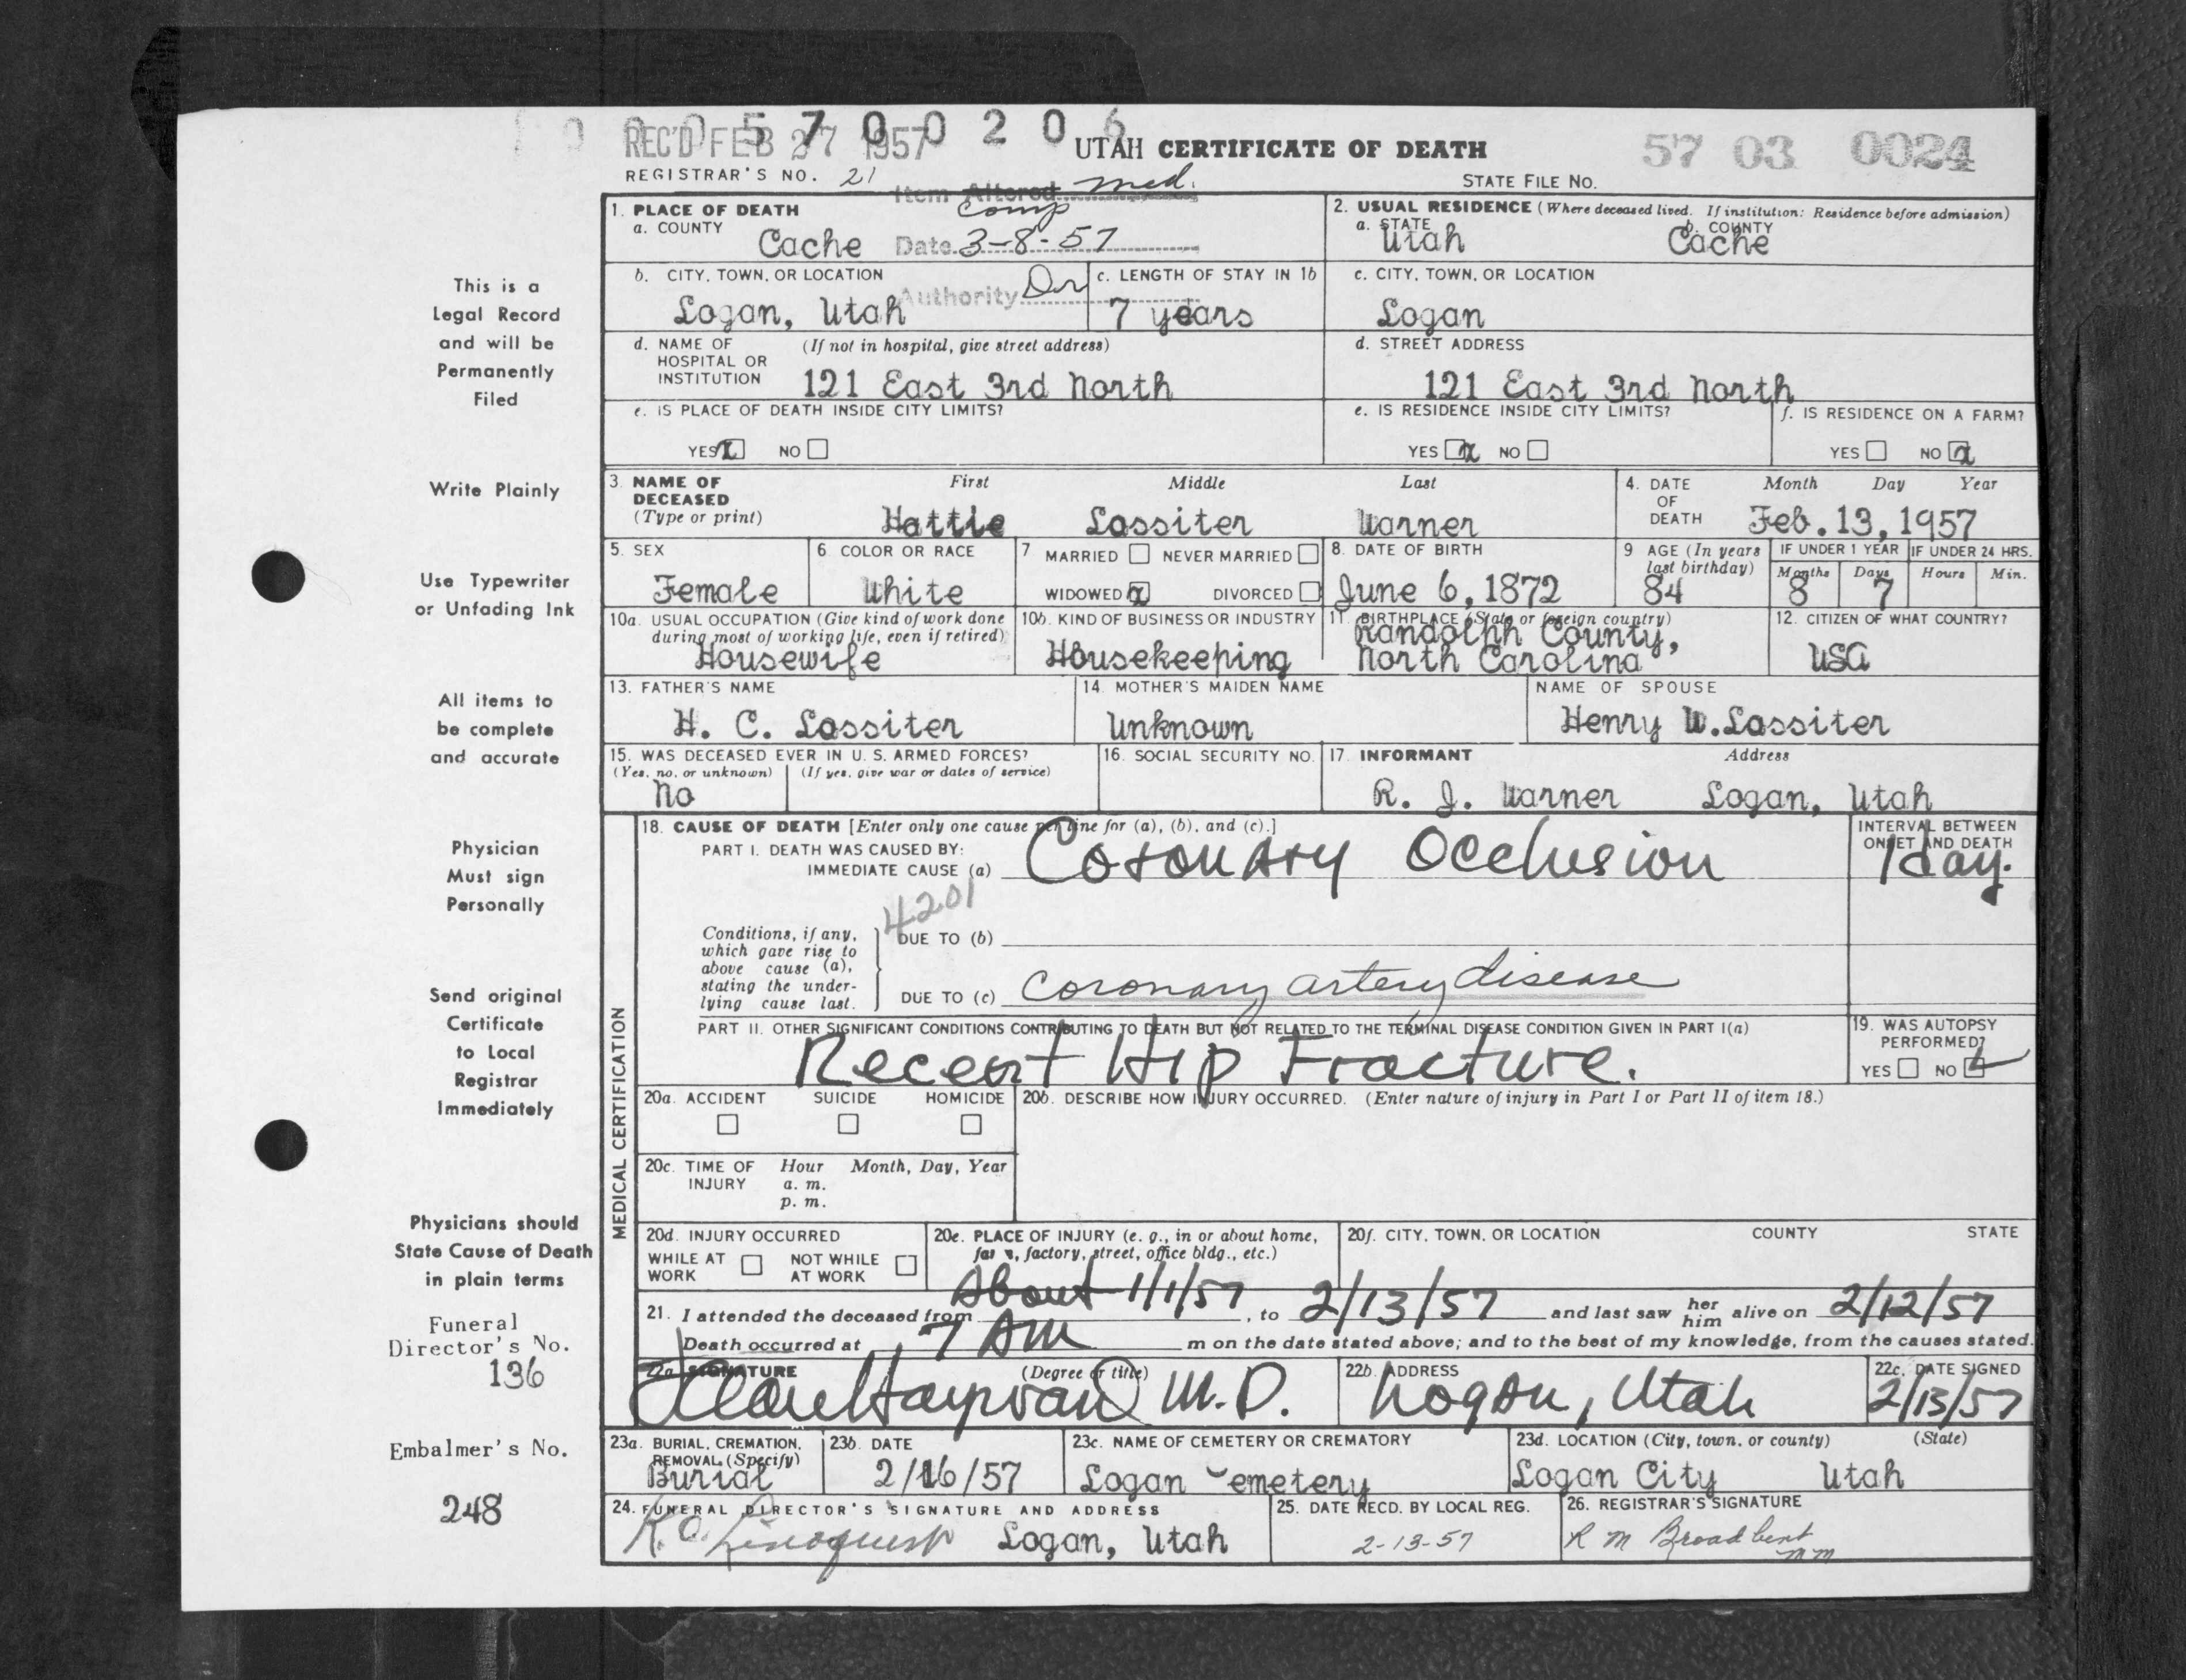 0 0 0 5 7 0 0 2 0 6
REC'D FEB 27 1957
UTAH CERTIFICATE OF DEATH
57 03 0024
REGISTRAR'S NO. 21
STATE FILE NO.
Item Altered med.
comp
Date 3-8-57
Authority Dr
1. PLACE OF DEATH
a. COUNTY
Cache
2. USUAL RESIDENCE (Where deceased lived. If institution: Residence before admission)
a. STATE b. COUNTY
Utah Cache
b. CITY, TOWN, OR LOCATION
Logan, Utah
c. LENGTH OF STAY IN 1b
7 years
c. CITY, TOWN, OR LOCATION
Logan
d. NAME OF (If not in hospital, give street address)
HOSPITAL OR
INSTITUTION 121 East 3rd North
d. STREET ADDRESS
121 East 3rd North
e. IS PLACE OF DEATH INSIDE CITY LIMITS?
YES x NO
e. IS RESIDENCE INSIDE CITY LIMITS?
YES x NO
f. IS RESIDENCE ON A FARM?
YES NO x
3. NAME OF First Middle Last
DECEASED
(Type or print) Hattie Lassiter Warner
4. DATE Month Day Year
OF
DEATH Feb. 13, 1957
5. SEX
Female
6. COLOR OR RACE
White
7 MARRIED NEVER MARRIED
WIDOWED x DIVORCED
8. DATE OF BIRTH
June 6, 1872
9 AGE (In years
last birthday)
84
IF UNDER 1 YEAR IF UNDER 24 HRS.
Months Days Hours Min.
8 7
10a. USUAL OCCUPATION (Give kind of work done
during most of working life, even if retired)
Housewife
10b. KIND OF BUSINESS OR INDUSTRY
Housekeeping
11. BIRTHPLACE (State or foreign country)
Randolph County,
North Carolina
12. CITIZEN OF WHAT COUNTRY?
USA
13. FATHER'S NAME
H. C. Lassiter
14. MOTHER'S MAIDEN NAME
Unknown
NAME OF SPOUSE
Henry W. Lassiter
15. WAS DECEASED EVER IN U. S. ARMED FORCES?
(Yes, no, or unknown) (If yes, give war or dates of service)
No
16. SOCIAL SECURITY NO.
17. INFORMANT Address
R. J. Warner Logan, Utah
MEDICAL CERTIFICATION
18. CAUSE OF DEATH [Enter only one cause per line for (a), (b), and (c).]
PART I. DEATH WAS CAUSED BY:
IMMEDIATE CAUSE (a) Coronary Occlusion
INTERVAL BETWEEN
ONSET AND DEATH
1 day.
4201
Conditions, if any,
which gave rise to
above cause (a),
stating the under-
lying cause last.
DUE TO (b)
DUE TO (c) Coronary artery disease
PART II. OTHER SIGNIFICANT CONDITIONS CONTRIBUTING TO DEATH BUT NOT RELATED TO THE TERMINAL DISEASE CONDITION GIVEN IN PART I(a)
Recent Hip Fracture.
19. WAS AUTOPSY
PERFORMED?
YES NO
20a. ACCIDENT SUICIDE HOMICIDE
20b. DESCRIBE HOW INJURY OCCURRED. (Enter nature of injury in Part I or Part II of item 18.)
20c. TIME OF Hour Month, Day, Year
INJURY a. m.
p. m.
20d. INJURY OCCURRED
WHILE AT NOT WHILE
WORK AT WORK
20e. PLACE OF INJURY (e. g., in or about home,
farm, factory, street, office bldg., etc.)
20f. CITY, TOWN, OR LOCATION COUNTY STATE
21. I attended the deceased from About 1/1/57, to 2/13/57 and last saw her him alive on 2/12/57
Death occurred at 7 AM m on the date stated above; and to the best of my knowledge, from the causes stated.
22a. SIGNATURE (Degree or title)
M.D.
22b. ADDRESS
Logan, Utah
22c. DATE SIGNED
2/13/57
23a. BURIAL, CREMATION,
REMOVAL (Specify)
Burial
23b. DATE
2/16/57
23c. NAME OF CEMETERY OR CREMATORY
Logan Cemetery
23d. LOCATION (City, town, or county) (State)
Logan City Utah
24. FUNERAL DIRECTOR'S SIGNATURE AND ADDRESS
Logan, Utah
25. DATE RECD. BY LOCAL REG.
2-13-57
26. REGISTRAR'S SIGNATURE
R M Broadbent
mm
This is a
Legal Record
and will be
Permanently
Filed
Write Plainly
Use Typewriter
or Unfading Ink
All items to
be complete
and accurate
Physician
Must sign
Personally
Send original
Certificate
to Local
Registrar
Immediately
Physicians should
State Cause of Death
in plain terms
Funeral
Director's No.
136
Embalmer's No.
248